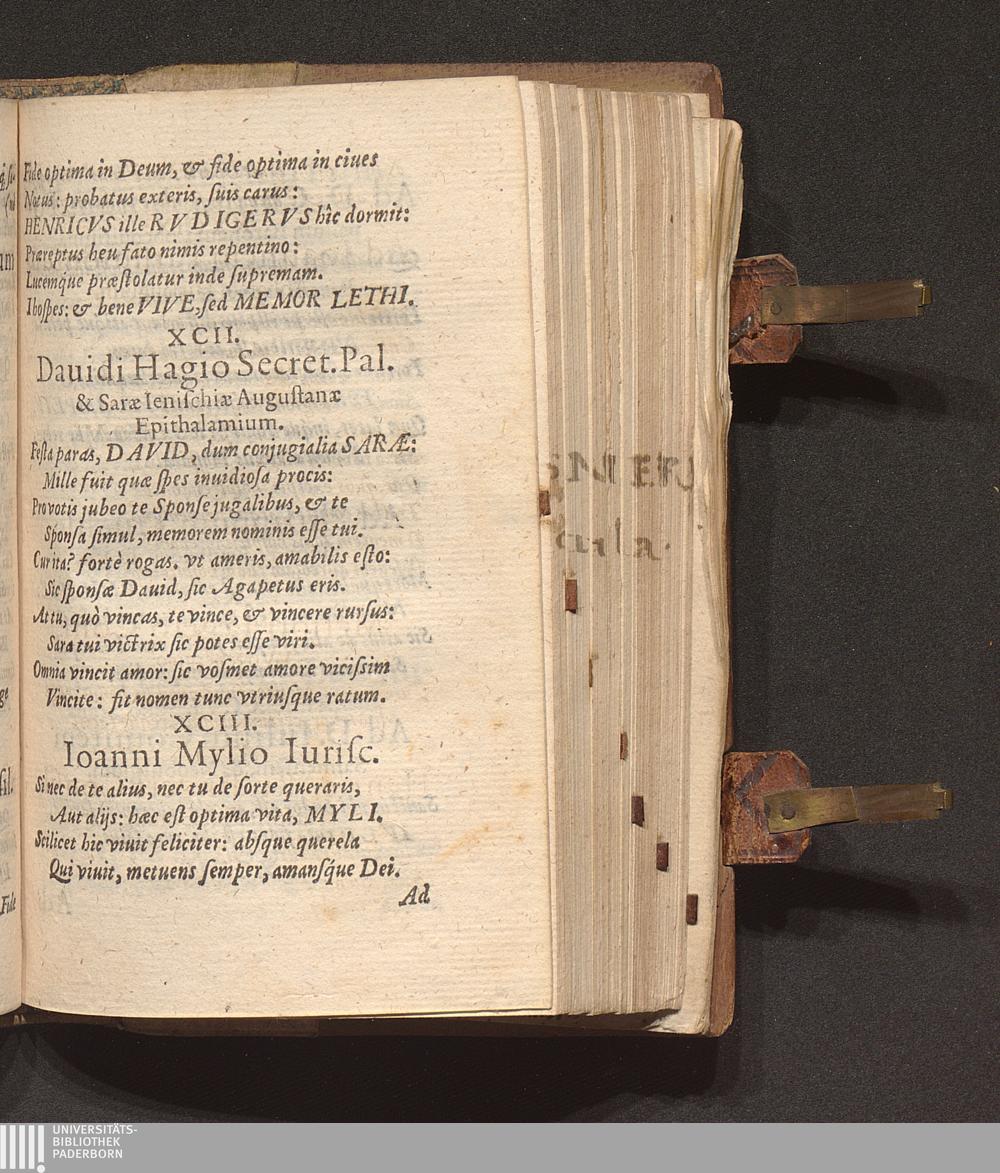 Fide optima in Deum, & fide optima in ciues
Notus: probatus exteris, ſuis carus:
HENRICVS ille RVDIGERVS hîc dormit:
Præreptus heu fato nimis repentino:
Lucemq́ue præſtolatur inde ſupremam.
I hoſpes: & bene VIVE, ſed MEMOR LETHI.
XCII.
Dauidi Hagio Secret. Pal.
& Saræ Ieniſchiæ Auguſtanæ
Epithalamium.
Feſta paras, DAVID, dum conjugialia SARÆ:
Mille fuit quæ ſpes inuidioſa procis:
Pro votis jubeo te Sponſe jugalibus, & te
Sponſa ſimul, memorem nominis eſſe tui.
Cur ita? fortè rogas. vt ameris, amabilis eſto:
Sic ſponſæ Dauid, ſic Agapetus eris.
At tu, quò vincas, te vince, & vincere rurſus:
Sara tui victrix ſic potes eſſe viri.
Omnia vincit amor: ſic voſmet amore viciſsim
Vincite: fit nomen tunc vtriuſque ratum.
XCIII.
Ioanni Mylio Iuriſc.
Si nec de te alius, nec tu de ſorte queraris,
Aut alijs: hæc eſt optima vita, MYLI.
Scilicet hic viuit feliciter: abſque querela
Qui viuit, metuens ſemper, amanſq́ue Dei.
Ad
Fide
UNIVERSITÄTS-
BIBLIOTHEK
PADERBORN